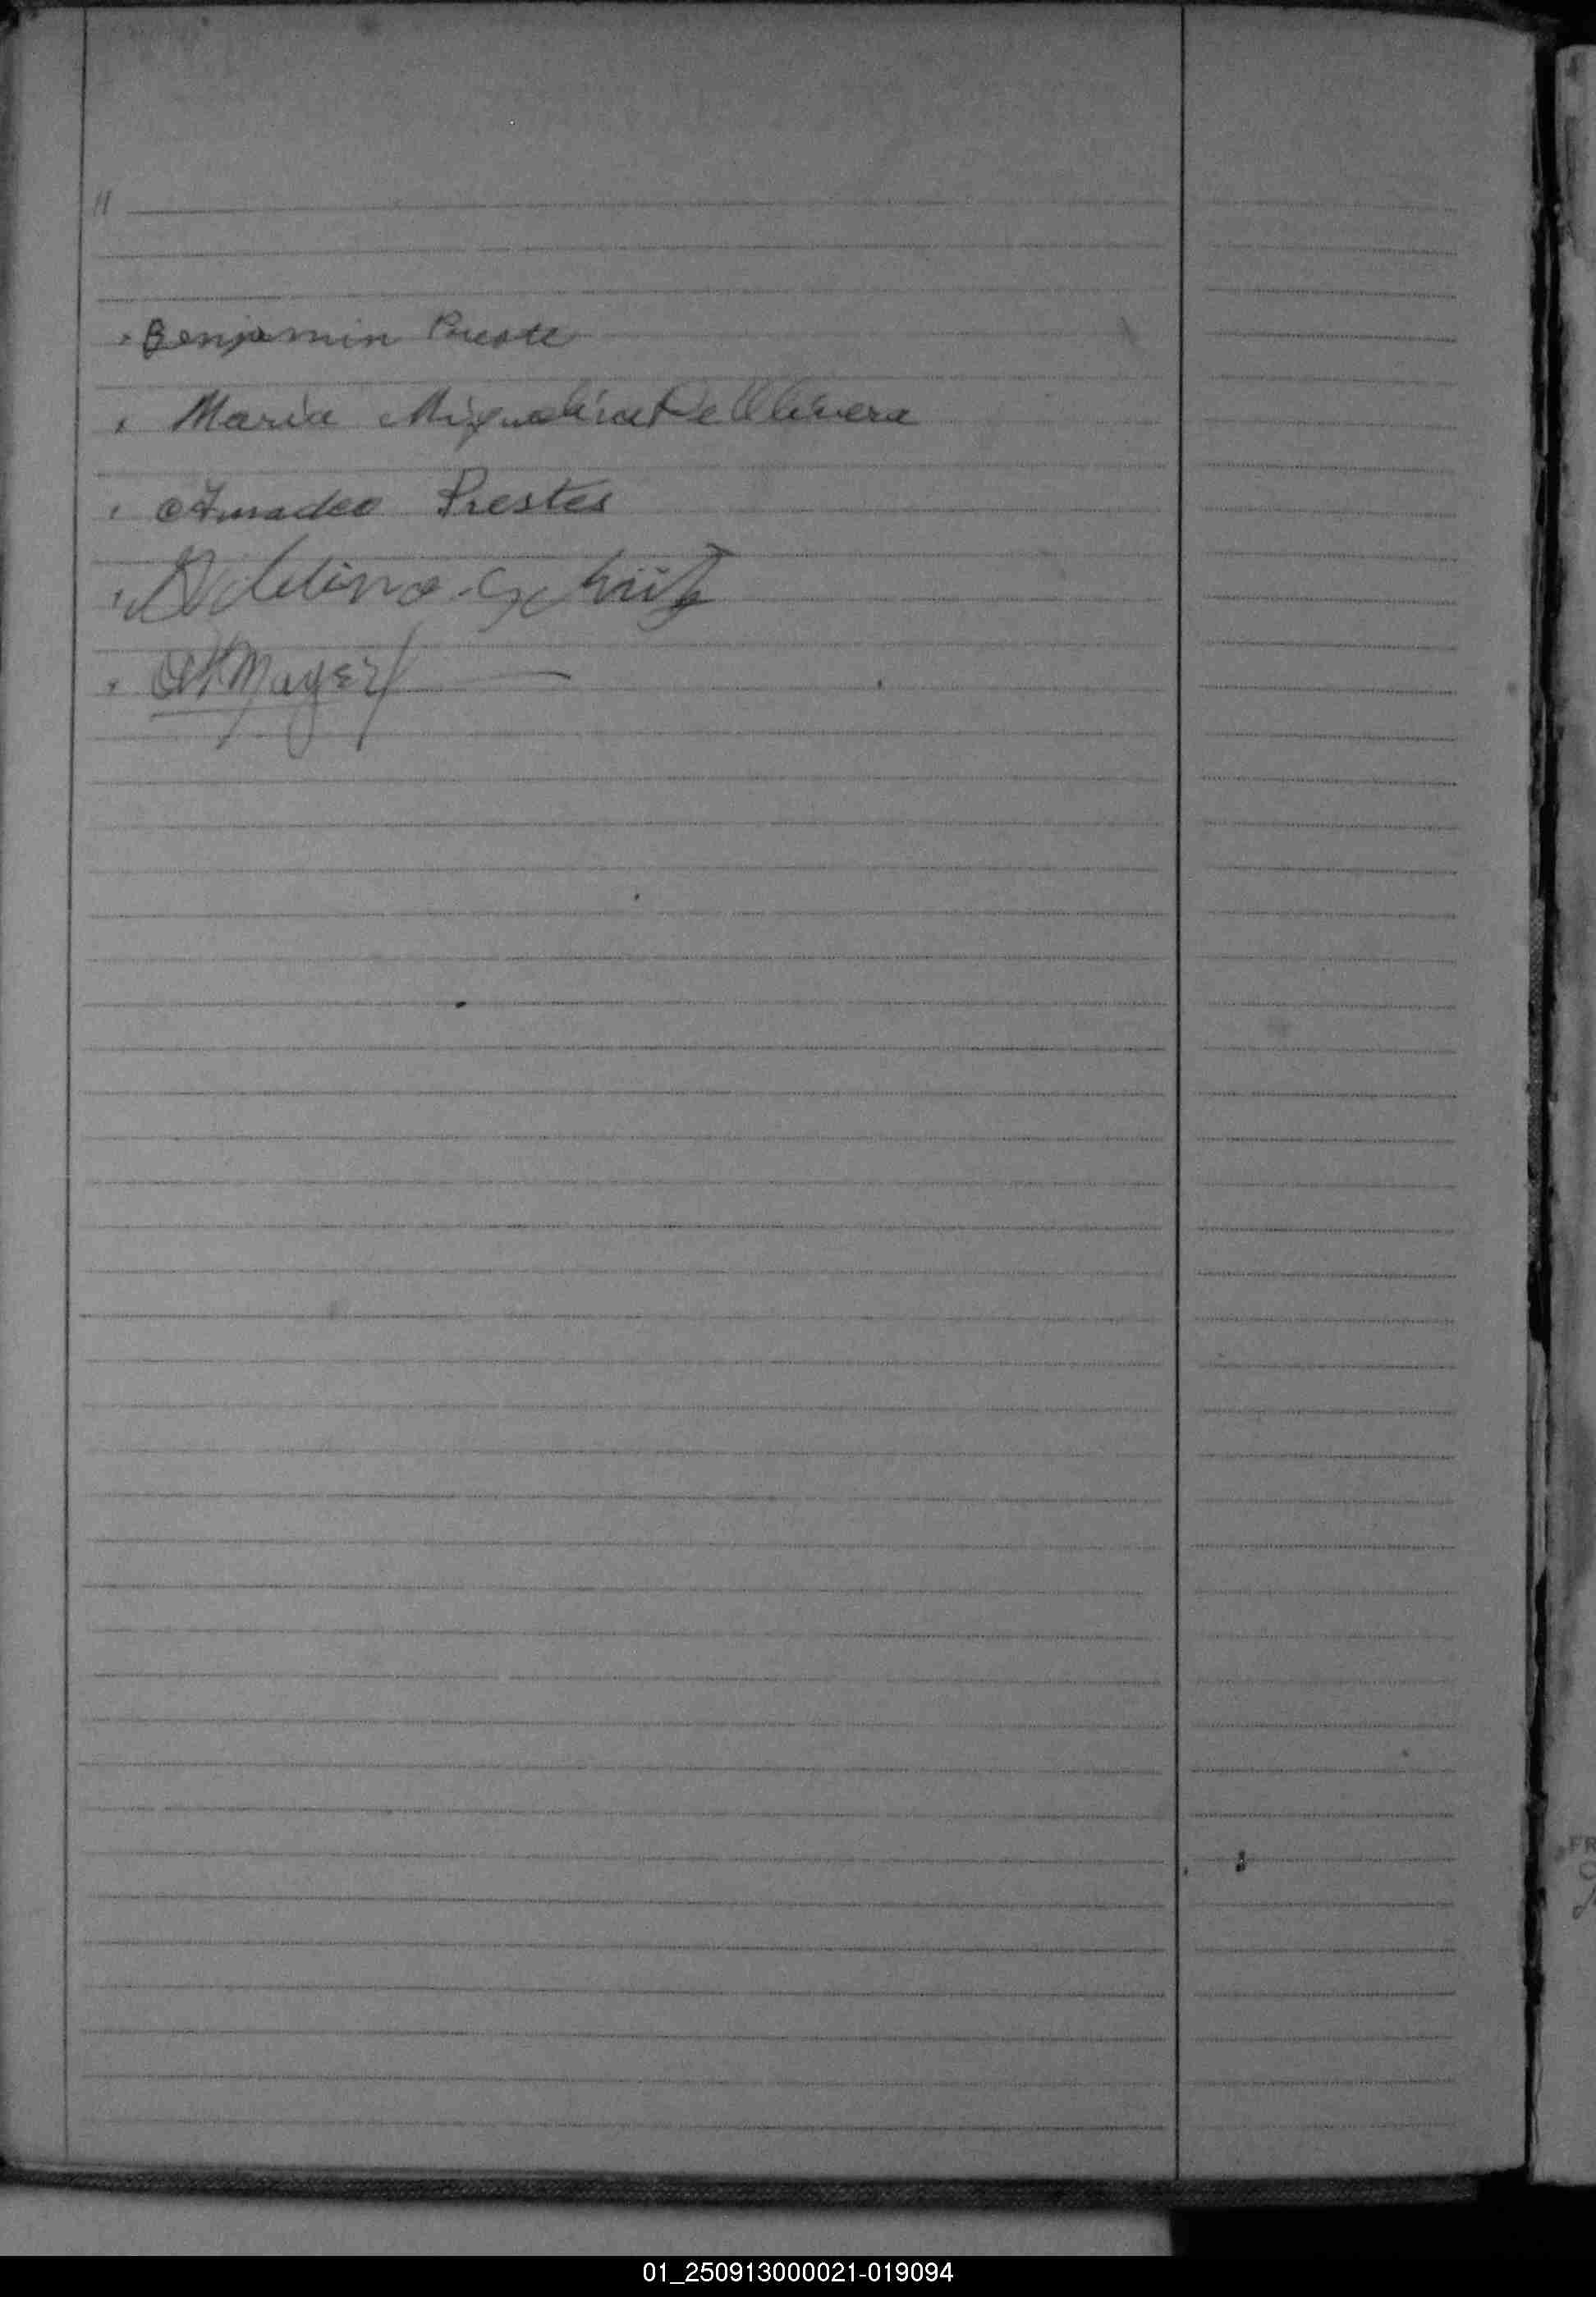 11
Benjamin Preste
Maria Miguelina De Olivera
Amadeo Prestes
Adelino Schütz
Mayer
FR
01_250913000021-019094